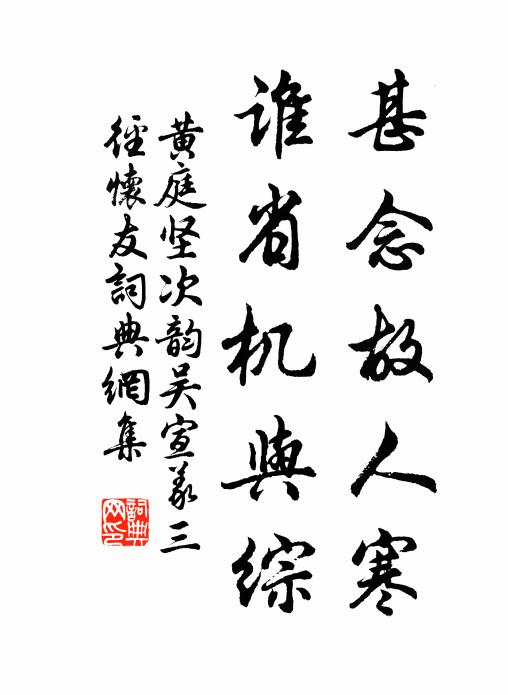 甚念故人寒
谁省机與综
黄庭坚次韵吴宣义三
徑懷友詞典網集
詞典
网印